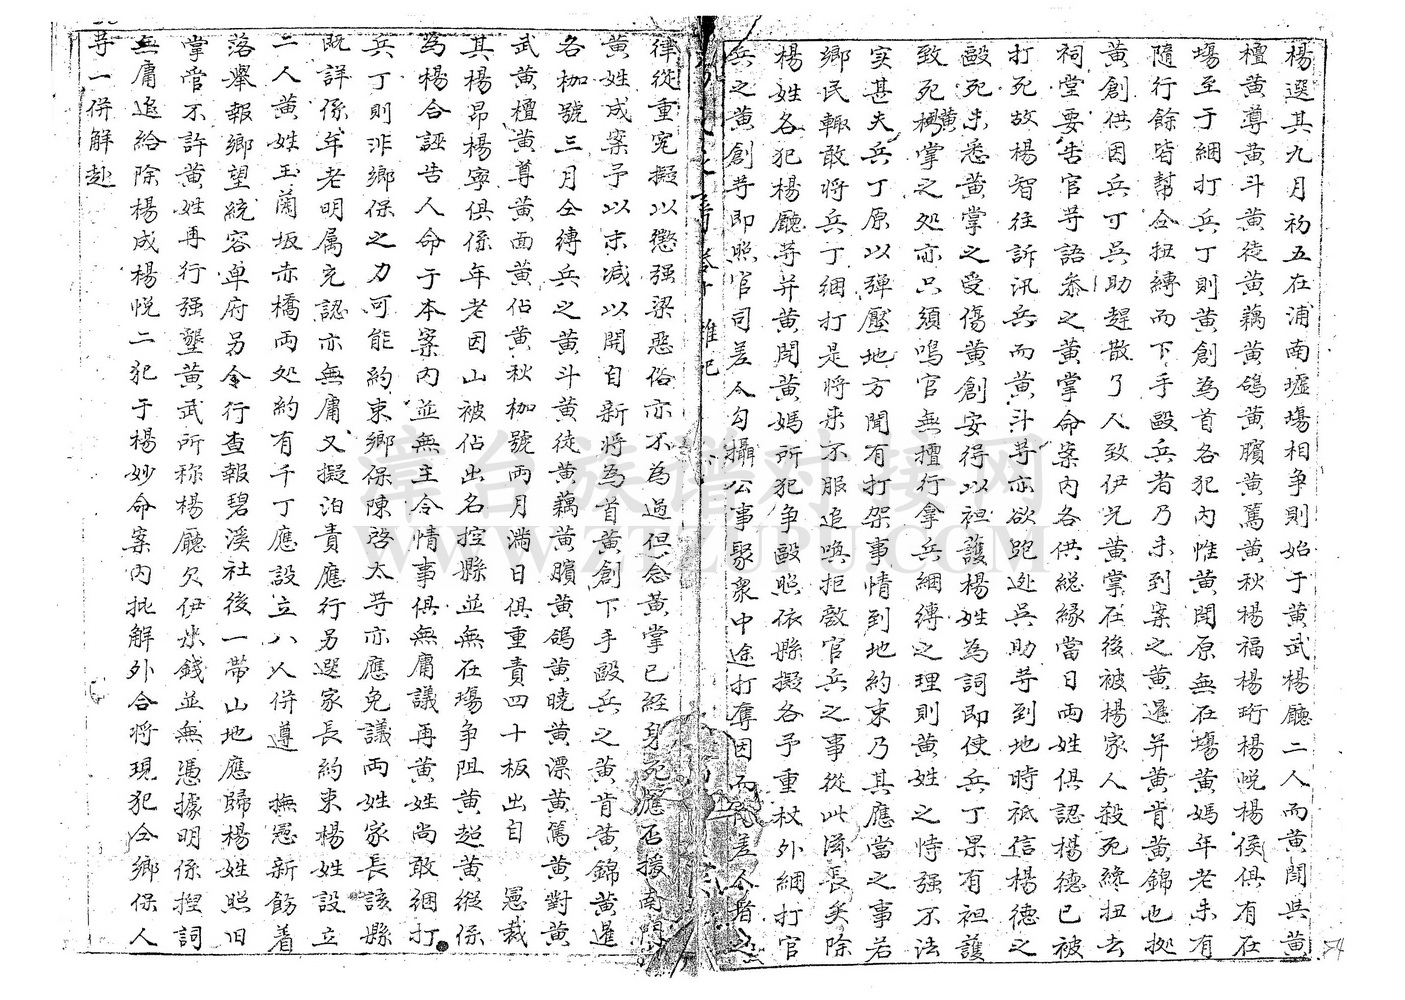 楊選其九月初五在浦南墟塲相争則始于黄武楊廳二人而黄閗與黄
檀黄尊黄斗黄徒黄藕黄鴿黄臏黄篤黄秋楊福楊珩楊悅楊侯俱有在
塲至于綑打兵丁則黄創為首各犯内惟黄閗原無在塲黄媽年老未有
隨行餘皆幫仝扭縛而下手毆兵者乃未到案之黄暹并黄肯黄錦也拠
黄創供因兵丁吳助趕散了人致伊兄黄掌在後被楊家人殺死緣扭去
祠堂要告官芽語叅之黄掌命案内各供縂緣當日両姓俱認楊德已被
打死故楊智往訴汛兵而黄斗芽亦欲跑迯吳助芽到地時祇信楊德之
毆死未悉黄掌之受傷黄創安得以袒護楊姓為詞即使兵丁果有袒護
致死黄掌之処亦只須鳴官無擅行拿兵綑縛之理則黄姓之恃强不法
实甚夫兵丁原以彈壓地方聞有打架事情到地約束乃其應當之事若
鄉民輙敢将兵丁綑打是将来不服追喚拒敵官兵之事從此滋長矣除
楊姓各犯楊廳芽并黄閗黄媽所犯争毆照依縣擬各予重杖外綑打官
兵之黄創芽即照官司差人勾攝公事聚衆中途打奪因而差人者之
卷十 雜记
律從重究擬以懲强梁惡俗亦不為過但念黄掌已経身死應否援南門
黄姓成案予以末减以開自新将為首黄創下手毆兵之黄肯黄錦黄暹
各枷號三月仝縛兵之黄斗黄徒黄藕黄臏黄鴿黄曉黄漂黄篤黄對黄
武黄檀黄尊黄面黄佔黄秋枷號両月滿日俱重責四十板出自 憲裁
其楊昂楊寧俱係年老因山被佔出名控縣並無在塲争阻黄超黄縱係
為楊合誣告人命于本案内並無主令情事俱無庸議再黄姓尚敢綑打
兵丁則非鄉保之力可能約束鄉保陳啓太芽亦應免議両姓家長該縣
既詳係年老明属充認亦無庸又擬泊責應行另選家長約束楊姓設立
二人黄姓玉蘭坂赤橋両处約有千丁應設立八人併遵 撫憲新飭着
落舉報鄉望統容卑府另令行查報碧溪社後一帶山地應歸楊姓照旧
掌管不許黄姓再行强墾黄武所称楊廳欠伊氷錢並無憑據明係捏詞
無庸追給除楊成楊悅二犯于楊妙命案内批解外合将現犯仝鄉保人
芽一併解赴
章台族谱对接网
WWW.ZTZUPU.COM